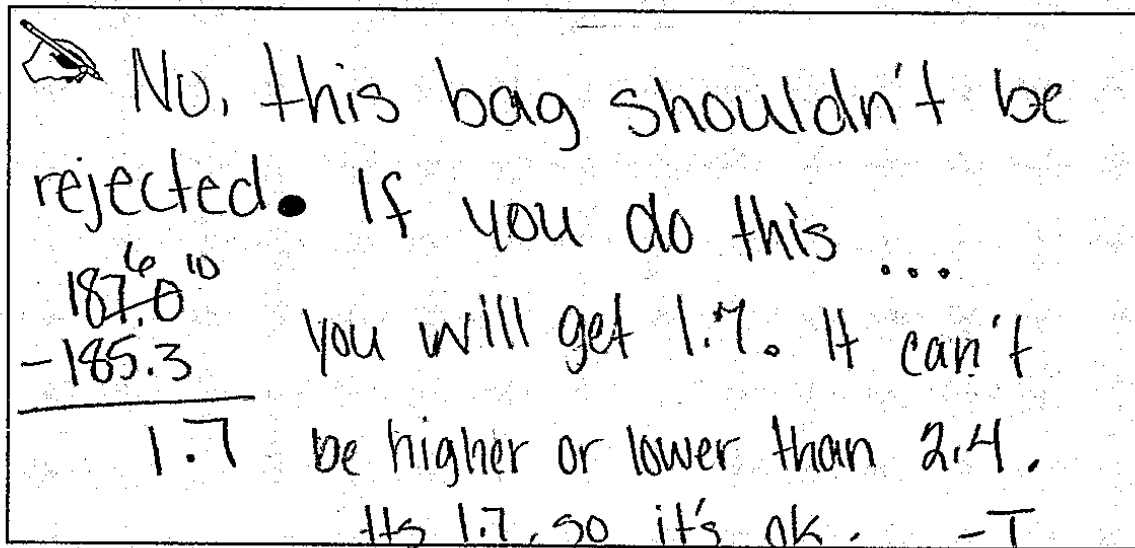 No, this bag shouldn't be
rejected. If you do this ...
6 10
187.0
-185.3
1.7
you will get 1.7. It can't
be higher or lower than 2.4.
Its 1.7, so it's ok. -T